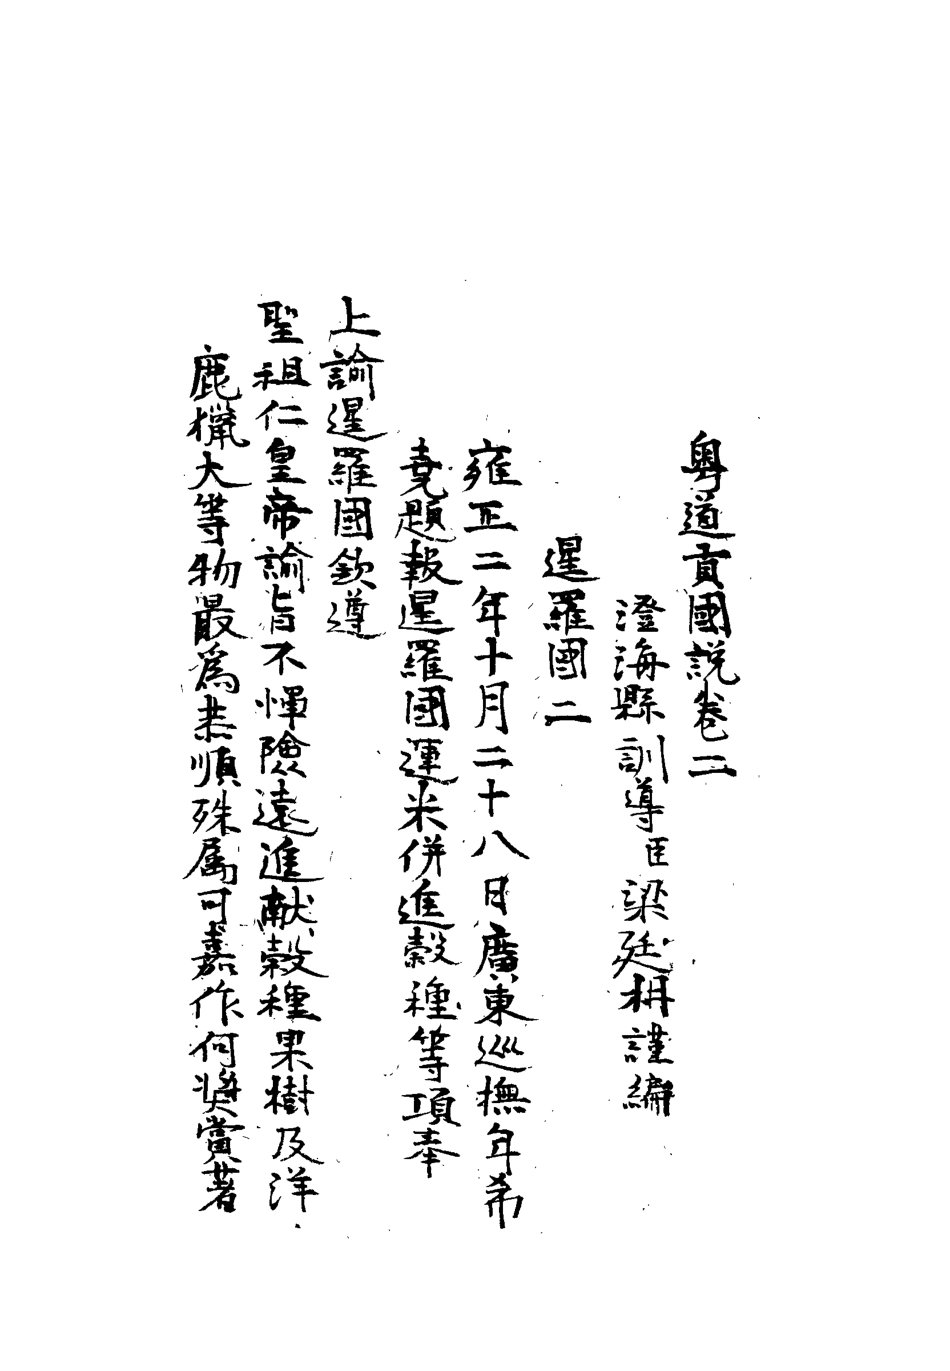 粤道貢國説卷二
澄海縣訓導臣梁廷枏謹編
暹羅國二
雍正二年十月二十八日廣東巡撫年希
堯題報暹羅國運米併進穀種等項奉
上諭暹羅國欽遵
聖祖仁皇帝諭旨不憚險遠進献穀種果樹及洋
鹿獵犬等物最為恭順殊属可嘉作何奬賞著